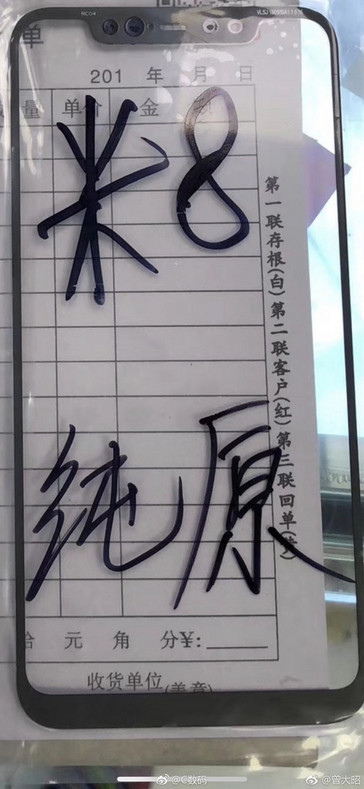 RC04
单
201 年 月 日
量 单价 金
米8
第一联存根(白)第二联客户(红)第三联回单
纯原
元 角 分¥:
收货单位(盖章)
@C数码
@曾大昭